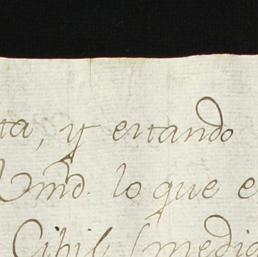 ta, y estando
Vmd. lo que e
Cibil (medi